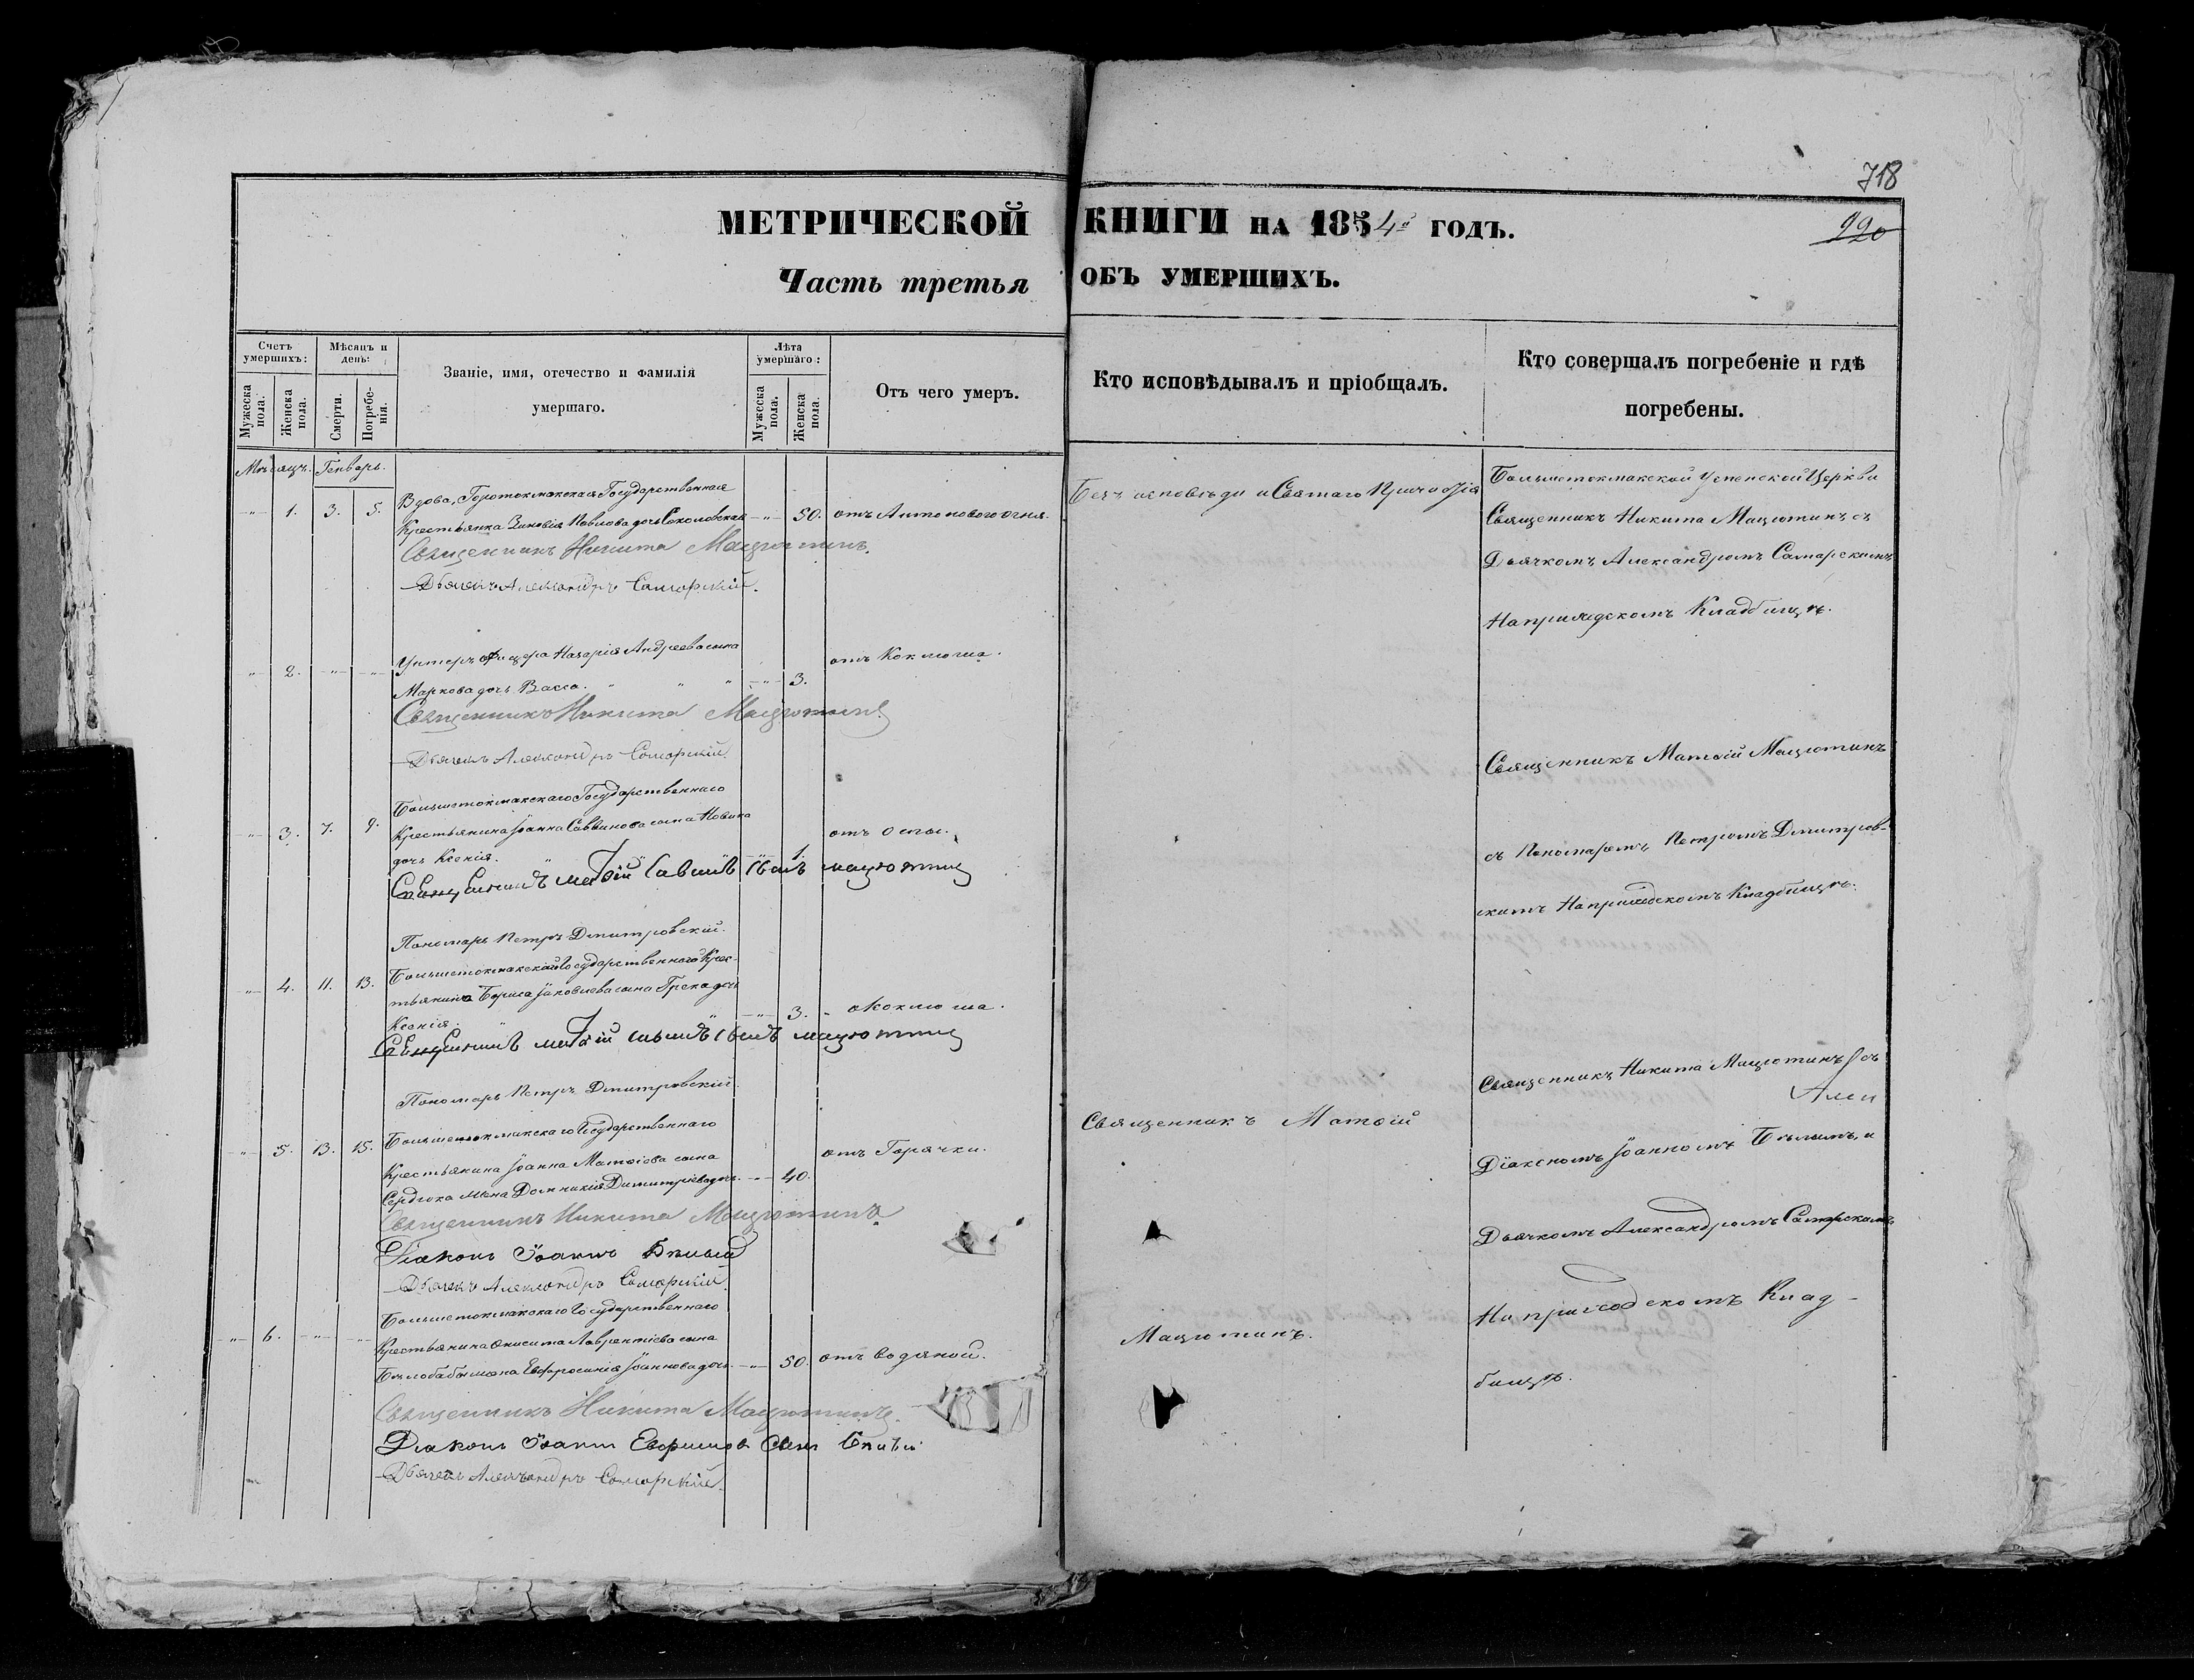 718
МЕТРИЧЕСКОЙ КНИГИ НА 1854й ГОДЪ.
220
Часть третья ОБЪ УМЕРШИХЪ.
Счетъ умершихъ:
Мѣсяцъ и день:
Званіе, имя, отечество и фамилія умершаго.
Лѣта умершаго:
Отъ чего умеръ.
Кто исповѣдывалъ и пріобщалъ.
Кто совершалъ погребеніе и гдѣ погребены.
Мужеска пола.
Женска пола.
Смерти.
Погребенія.
Мужеска пола.
Женска пола.
Мѣсяцъ. Генварь.
Вдова, Государственная
1. 3. 5. Крестьянка Зиновія Павлова дочь Соколовская 50. отъ Антонового огня.
Священникъ Никита Мацютинъ.
Дьячекъ Александръ Самарскій.
Безъ исповѣди и Святаго Причастія
Большетокмакской Успенской Церкви
Священникъ Никита Мацютинъ съ
Дьячкомъ Александромъ Самарскимъ
На приходскомъ Кладбищѣ.
2. Унтеръ офицера Назарія Андреева сына
Маркова дочь Васса. 3. отъ Коклюша.
Священникъ Никита Мацютинъ
Дьячекъ Александръ Самарскій.
Большетокмакскаго Государственнаго
3. 7. 9. Крестьянина Іоанна Саввинова сына Новика
дочь Ксенія. 1. отъ оспы.
Священникъ Матѳій Мацютинъ
Пономарь Петръ Дмитровскій.
Священникъ Матѳій Мацютинъ
съ Пономаремъ Петромъ Дмитров-
скимъ На приходскомъ Кладбищѣ.
4. 11. 13. Государственнаго Крес-
тьянина Бориса Іаковлева сына Грека дочь
Ксенія. 3. Коклюша.
Священникъ Матѳій Мацютинъ
Пономарь Петръ Дмитровскій
Большетокмакскаго Государственнаго
5. 13. 15. Крестьянина Іоанна Матѳіева сына
Сердюка жена Домникія Димитріева дочь. 40. отъ Горячки.
Священникъ Никита Мацютинъ
Діаконъ Іоаннъ Бѣлый
Дьячекъ Александръ Самарскій.
Священникъ Матѳій
Мацютинъ.
Священникъ Никита Мацютинъ съ
Діакономъ Іоанномъ Бѣлымъ, и
Дьячкомъ Александромъ Самарскимъ
На приходскомъ Клад-
бищѣ.
Большетокмакскаго Государственнаго
6. Крестьянина Онисима Лаврентіева сына
Бѣлобабы жена Евфросинія Іоаннова дочь. 50. отъ водяной.
Священникъ Никита Мацютинъ.
Діаконъ Іоаннъ Ефимовъ сынъ Бѣлый
Дьячекъ Александръ Самарскій.